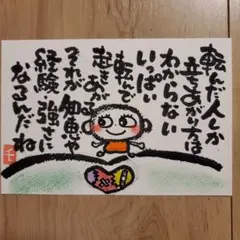 転んだ人しか
立ちあがり方は
わからない
いっぱい
転んで
起きあがる
それが知恵や
経験・強さに
なるんだーね